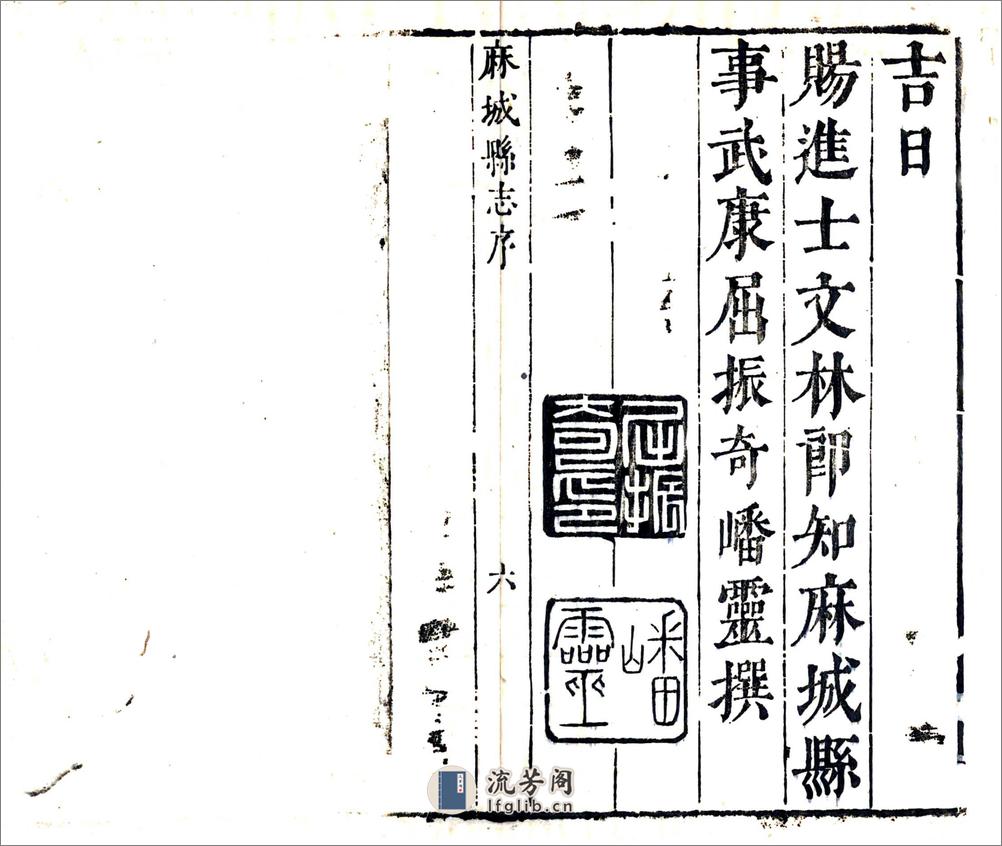 吉日
賜進士文林郎知麻城縣
事武康屈振奇嶓靈撰
屈振奇印
嶓靈
麻城縣志序
六
流芳阁
lfglib.cn